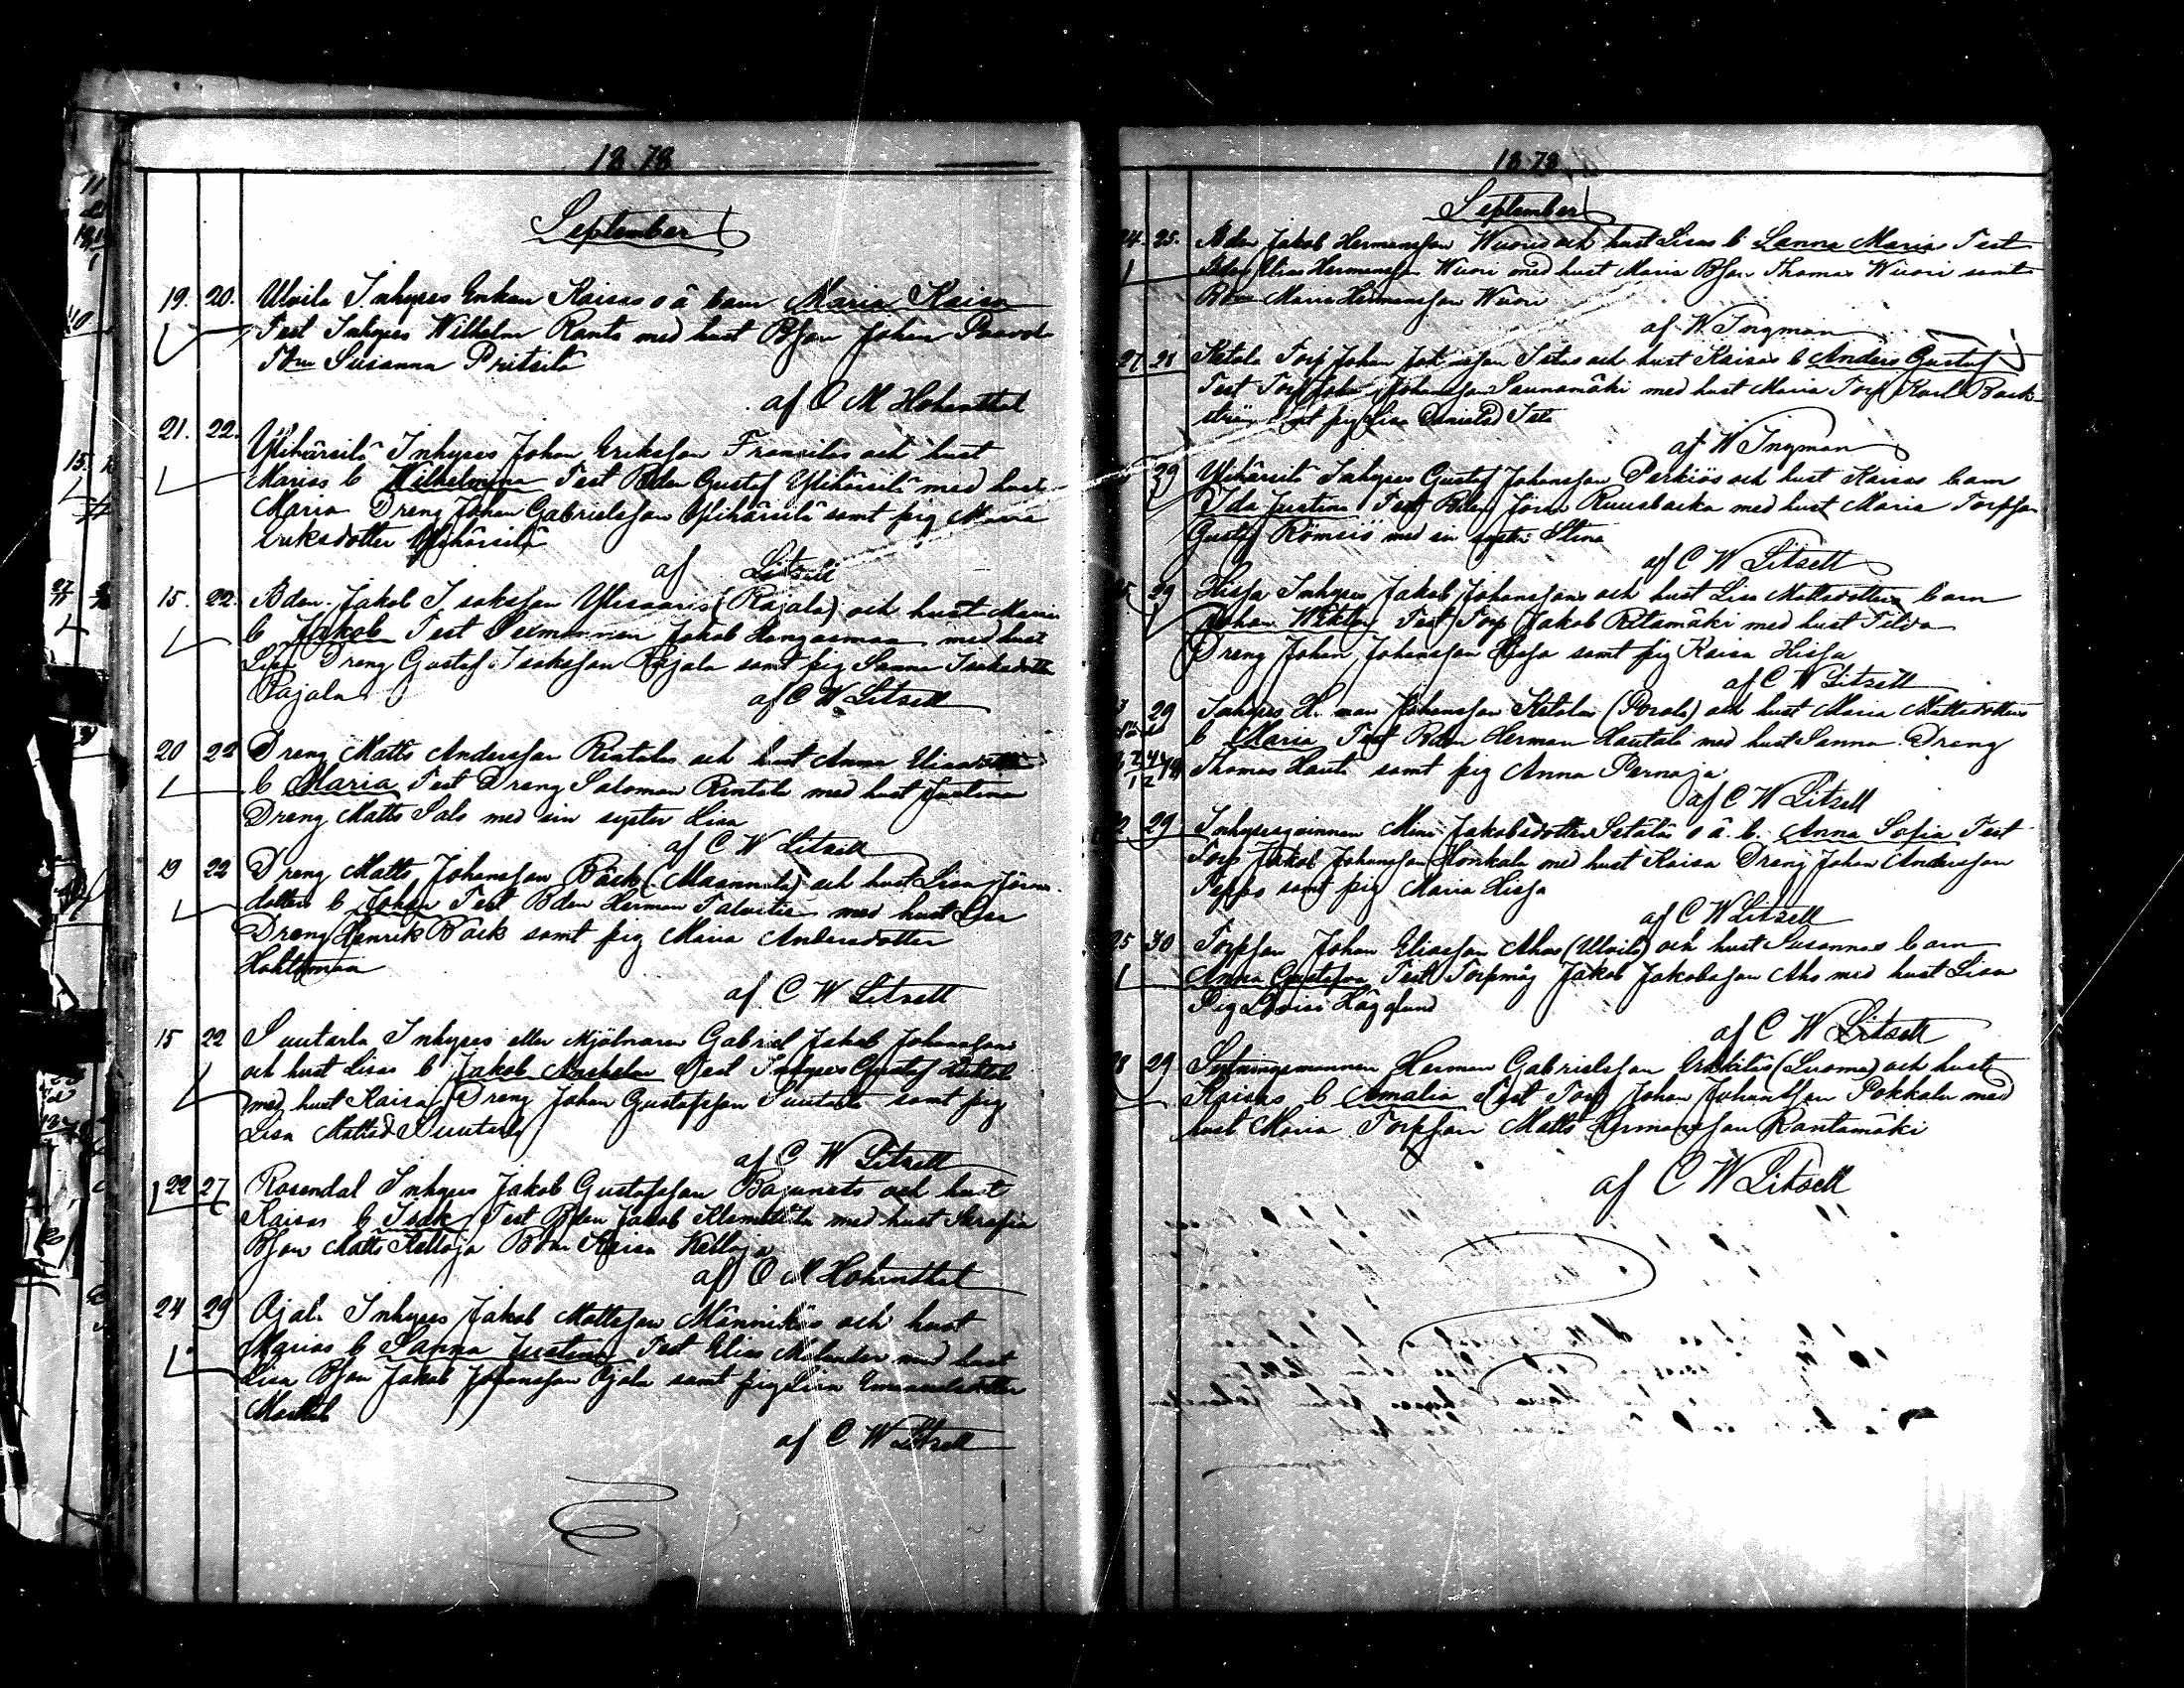 1878
September
19. 20. Ulvila Inhyses Enkan Kaisas o ä barn Maria Kaisa
Test Inhyses Wilhelm Ranto med hust BSon Johan
Susanna Pritsilä
af O M Hohenthal
21. 22. Ylihärsilä Inhyses Johan Eriksson Fransilas och hust
Marias b Wilhelmina Test Bden Gustaf Ylihärsilä med hust
Maria Dreng Johan Gabrielsson Ylihärsilä samt pig Maria
Eriksdotter Ylihärsilä
af Litzell
15. 22. Bden Jakob Isaksson Ylisaaris (Rajala) och hust Maria
b Jakob Test Sexmannen Jakob Hangasmaa med hust
Lisa Dreng Gustaf Isaksson Rajala samt pig Sanna Isaksdotter
Rajala
af C W Litzell
20 22 Dreng Matts Andersson Rintalas och hust Anna Elisabeths
b Maria Test Dreng Salomon Rintala med hust Justina
Dreng Matts Salo med sin syster Lisa
af C W Litzell
19 22 Dreng Matts Johansson Bäck (Maannila) och hust Lisa Jöran
dotters b Johan Test Bden Herman Talvitie med hust Lisa
Dreng Henrik Bäck samt pig Maria Andersdotter
Hohtimaa
af C W Litzell
15 22 Suutarla Inhyses eller Mjölnaren Gabriel Jakob Johanssons
och hust Lisas b Jakob Test Inhyses Gustaf
med hust Kaisa Dreng Johan Gustafsson Suutarla samt pig
Lisa Mattsd Suutarla
af C W Litzell
22 27 Rosendal Inhyses Jakob Gustafsson Bajunets och hust
Kaisas b Isak Test Bden Jakob Klemettilä med hust Serafia
BSon Matts Kellaja Kaisa Kellaja
af O M Hohenthal
24 29 Ojala Inhyses Jakob Mattsson Männikös och hust
Marias b Sanna Justina Test Elias Melender med hust
Lisa BSon Jakob Johansson Ojala samt pig Lisa Emanuelsdotter
Markus
af C W Litzell
1878
September
24. 25. Bden Jakob Hermansson Wuoris och hust Lisas b Sanna Maria Test
Bden Elias Hermansson Wuori med hust Maria BSon Thomas Wuori samt
Maria Hermansson Wuori
af W Ingman
27 28 Ketola Torp Johan och hust Kaisas b Anders Gustaf
Test Torp Johan Johansson Saunamäki med hust Maria Torp Karl Back
ström pig Lisa Danielsd
af W Ingman
29 Ylihärsilä Inhyses Gustaf Johansson Perkiös och hust Kaisas barn
Ida Justina Test Bden Jöran Ruusbacka med hust Maria Torpson
Gustaf Römsiö med sin syster Stina
af C W Litzell
29 Hissa Inhyses Jakob Johanssons och hust Lisa Mattsdotters barn
Johan Wiktor Test Torp Jakob Ritamäki med hust Tilda
Dreng Johan Johansson Hissa samt pig Kaisa Hissa
af C W Litzell
29 Inhyses Johansson Ketolas (Perala) och hust Maria Mattsdotters
b Maria Test Bden Herman Hautala med hust Sanna Dreng
Thomas Hauta samt pig Anna Pernaja
af C W Litzell
29 Inhysesqvinnan Mina Jakobsdotter Setälä o ä. b. Anna Sofia Test
Torp Jakob Johansson Honkala med hust Kaisa Dreng Johan Andersson
Seppas samt pig Maria Hissa
af C W Litzell
25 30 Torpson Johan Eliasson Ahas (Ulvila) och hust Susannas barn
Anna Gustafva Test Torpmåg Jakob Jakobsson Aho med hust Lisa
Pig Lovisa Hägglund
af C W Litzell
28 29 Sytningsmannen Herman Gabrielsson Erkkiläs (Luoma) och hust
Kaisas b Amalia Test Torp Johan Johansson Pokkala med
hust Maria Torpson Matts Hermansson Rantamäki
af C W Litzell